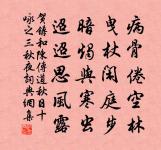 病骨倦空林
曳杖閑庭步
暗燭與寒虫
迢迢思風露
賀鑄和陳傅道秋日十
詠之三秋夜詞典網集